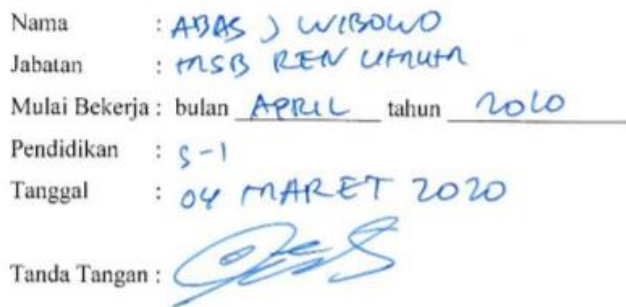 Nama : ABAS J WIBOWO
Jabatan : MSB REN UMUM
Mulai Bekerja : bulan APRIL tahun 2010
Pendidikan : S-1
Tanggal : 04 MARET 2020
Tanda Tangan :